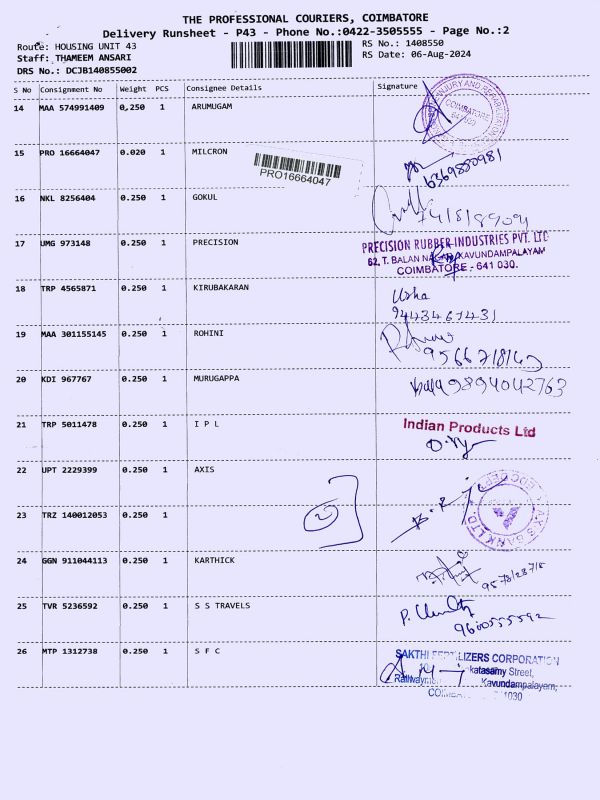 THE PROFESSIONAL COURIERS, COIMBATORE
Delivery Runsheet - P43 - Phone No.:0422-3505555 - Page No.:2
Route: HOUSING UNIT 43
RS No.: 1408550
Staff: THAMEEM ANSARI
RS Date: 06-Aug-2024
DRS No.: DCJB140855002
S No Consignment No Weight PCS Consignee Details Signature
14 MAA 574991409 0,250 1 ARUMUGAM
COIMBATORE
15 PRO 16664047 0.020 1 MILCRON
PRO16664047
6369850981
16 NKL 8256404 0.250 1 GOKUL
17 UMG 973148 0.250 1 PRECISION
PRECISION RUBBER INDUSTRIES PVT. LTD
62, T. BALAN KAVUNDAMPALAYAM
COIMBATORE - 641 030.
18 TRP 4565871 0.250 1 KIRUBAKARAN
Usha
9443467431
19 MAA 301155145 0.250 1 ROHINI
20 KDI 967767 0.250 1 MURUGAPPA
9894042763
21 TRP 5011478 0.250 1 I P L
Indian Products Ltd
22 UPT 2229399 0.250 1 AXIS
AXIS BANK LTD.
23 TRZ 140012053 0.250 1
24 GGN 911044113 0.250 1 KARTHICK
25 TVR 5236592 0.250 1 S S TRAVELS
9600555592
26 MTP 1312738 0.250 1 S F C
SAKTHI FERTILIZERS CORPORATION
katasamy Street,
Kavundampalayam,